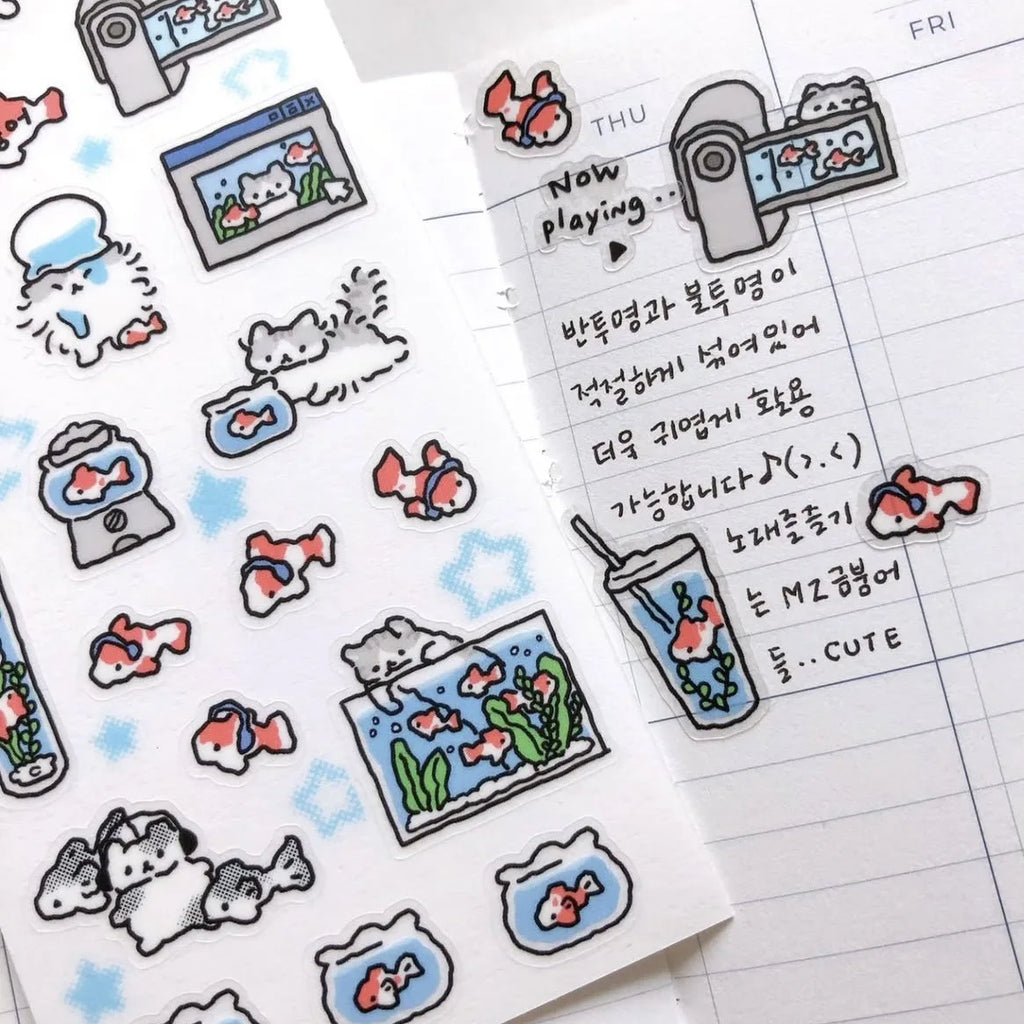 FRI
THU
Now
playing..
반투명과 불투명이
적절하게 섞여있어
더욱 귀엽게 활용
가능합니다♪(>.<)
노래즐기
는 MZ금붕어
들..CUTE